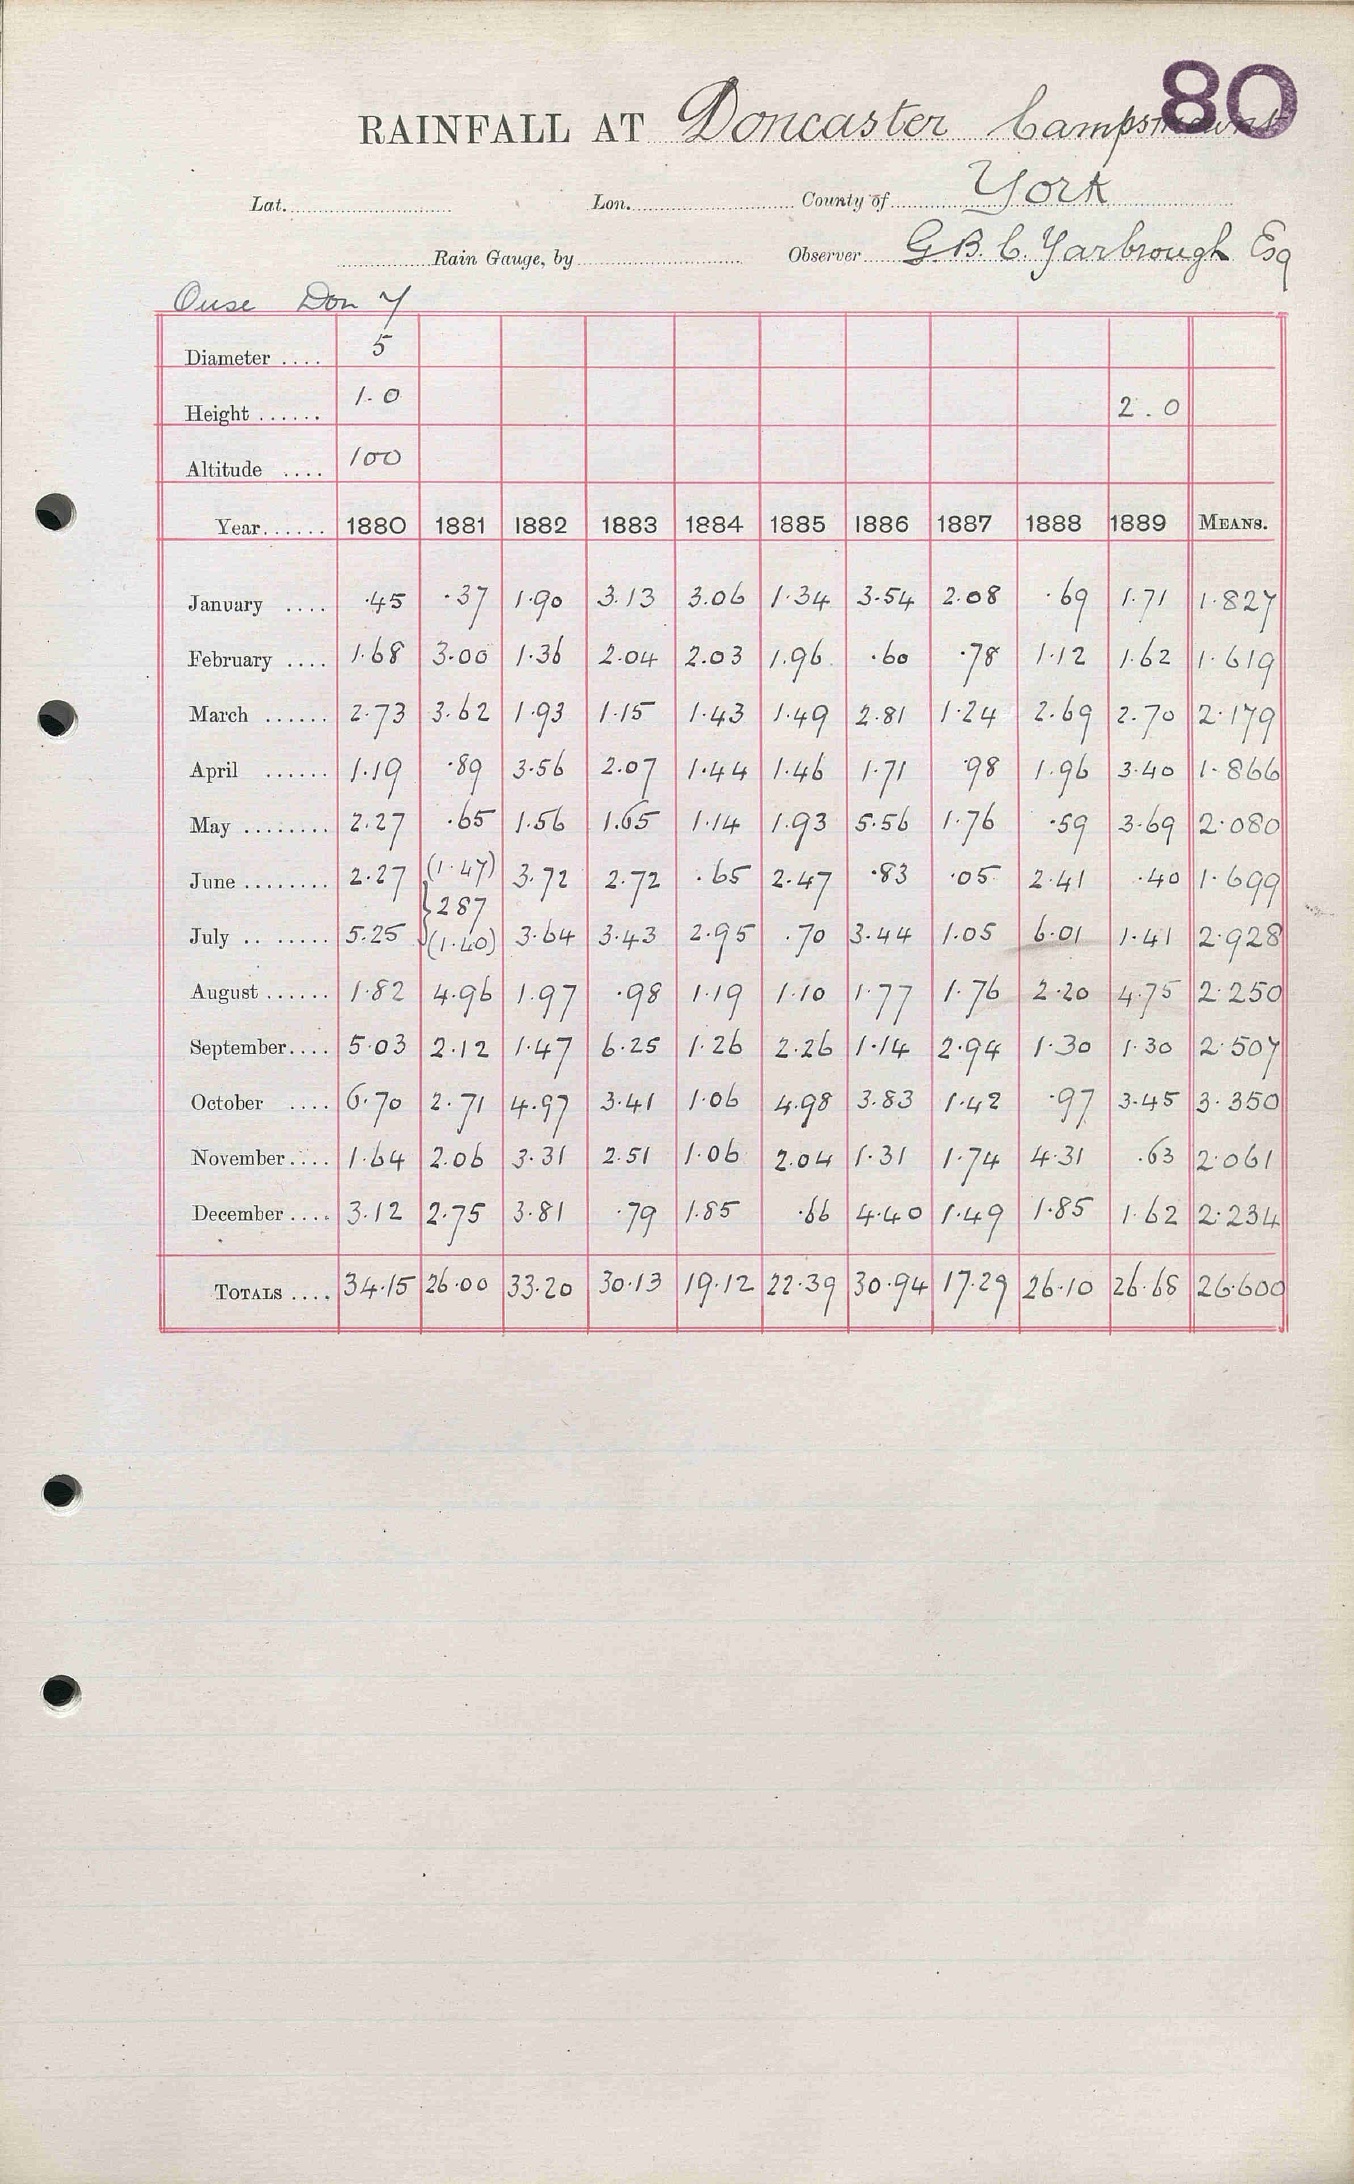 80
RAINFALL AT Doncaster Campsmount
Lat. Lon. County of York
Rain Gauge, by Observer G. B. C. Yarbrough Esq
Ouse Don Y
Diameter .... 5
Height ...... 1.0 2.0
Altitude .... 100
Year...... 1880 1881 1882 1883 1884 1885 1886 1887 1888 1889 MEANS.
January .... .45 .37 1.90 3.13 3.06 1.34 3.54 2.08 .69 1.71 1.827
February .... 1.68 3.00 1.36 2.04 2.03 1.96 .60 .78 1.12 1.62 1.619
March ...... 2.73 3.62 1.93 1.15 1.43 1.49 2.81 1.24 2.69 2.70 2.179
April ...... 1.19 .89 3.56 2.07 1.44 1.46 1.71 .98 1.96 3.40 1.866
May ........ 2.27 .65 1.56 1.65 1.14 1.93 5.56 1.76 .59 3.69 2.080
June ........ 2.27 (1.47) 3.72 2.72 .65 2.47 .83 .05 2.41 .40 1.699
287
July .. ...... 5.25 (1.40) 3.64 3.43 2.95 .70 3.44 1.05 6.01 1.41 2.928
August ...... 1.82 4.96 1.97 .98 1.19 1.10 1.77 1.76 2.20 4.75 2.250
September.... 5.03 2.12 1.47 6.25 1.26 2.26 1.14 2.94 1.30 1.30 2.507
October .... 6.70 2.71 4.97 3.41 1.06 4.98 3.83 1.42 .97 3.45 3.350
November.... 1.64 2.06 3.31 2.51 1.06 2.04 1.31 1.74 4.31 .63 2.061
December .... 3.12 2.75 3.81 .79 1.85 .66 4.40 1.49 1.85 1.62 2.234
TOTALS .... 34.15 26.00 33.20 30.13 19.12 22.39 30.94 17.29 26.10 26.68 26.600